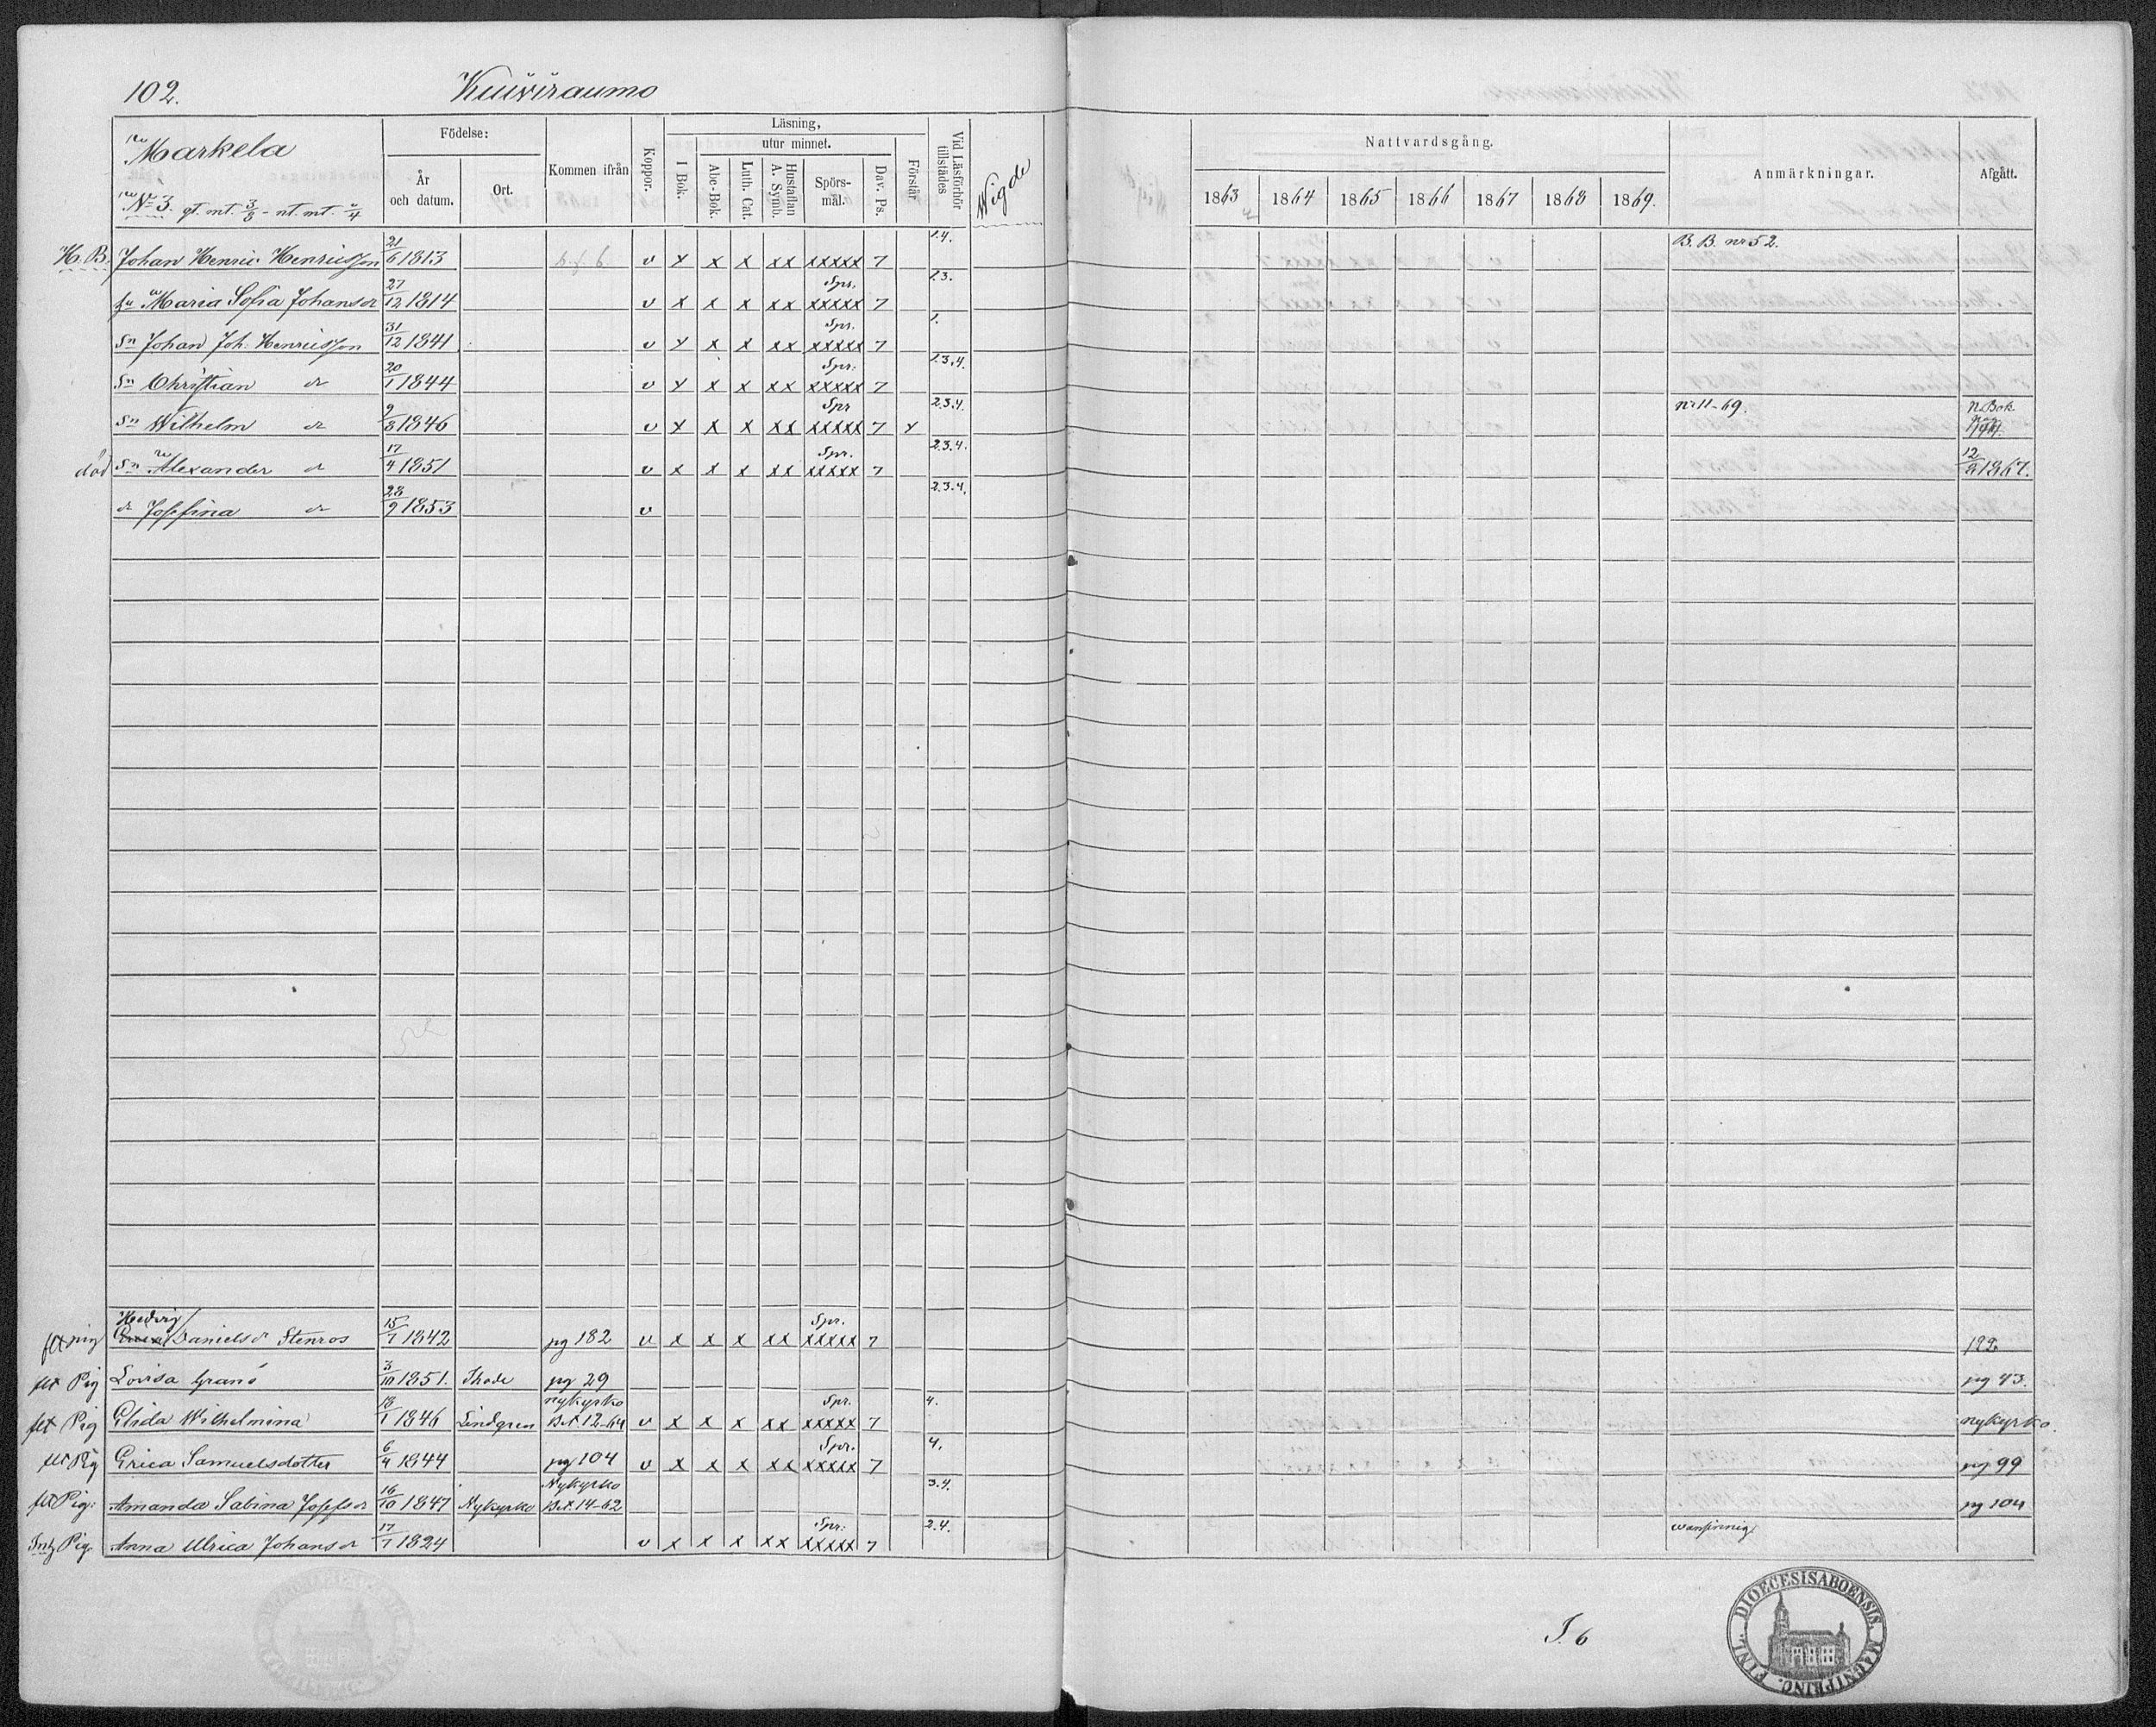 102. Kuiviraumo
Markela
No 3.
Födelse:
År och datum.
Ort.
Kommen ifrån
Koppor.
Läsning,
I Bok.
utur minnet.
Abc-Bok.
Luth. Cat.
Hustaflan A. Symb.
Spörs-mål.
Dav. Ps.
Förstår.
Vid Läsförhör tillstädes
Wigde
Nattvardsgång.
1863 1864 1865 1866 1867 1868 1869.
Anmärkningar.
Afgått.
H. B. Johan Henric Henricsson 21/6 1813 v x x x xx xxxxx 7 1.4. B. B. nr 52.
hu Maria Sofia Johansdr 27/12 1814 v x x x xx Spr. xxxxx 7 1.3.
Sn Johan Joh. Henricsson 31/12 1841 v x x x xx Spr. xxxxx 7 1.
Sn Christian dr 20/1 1844 v x x x xx Spr. xxxxx 7 1.3.4.
Sn Wilhelm dr 9/8 1846 v x x x xx Spr xxxxx 7 x 2.3.4. nr 11-69. N. Bok
död Sn Alexander dr 17/4 1851 v x x x xx Spr. xxxxx 7 2.3.4. 12/8 1867.
dr Josefina dr 28/9 1853 v 2.3.4.
flt pig Hedvig Danielsdr Stenros 15/7 1842 pg 182 v x x x xx Spr. xxxxx 7 182
flt Pig Lovisa Granö 3/10 1851. Thode pg 29 pg 43.
flt Pig Elida Wilhelmina 18/1 1846 Lindgren nykyrko Bet 12-64 v x x x xx Spr. xxxxx 7 4. nykyrko.
flt Pig Erica Samuelsdotter 6/4 1844 pg 104 v x x x xx Spr. xxxxx 7 4. pg 99
flt Pig. Amanda Sabina Josefsdr 16/10 1847 Nykyrko Nykyrko Bet. 14-62 3.4. pg 104
Inh Pig. Anna Ulrica Johansdr 17/7 1824 v x x x xx Spr. xxxxx 7 2.4. wansinnig
T. 6
FINL. DIOECESIS ABOENSIS. MAGNI PRINC.